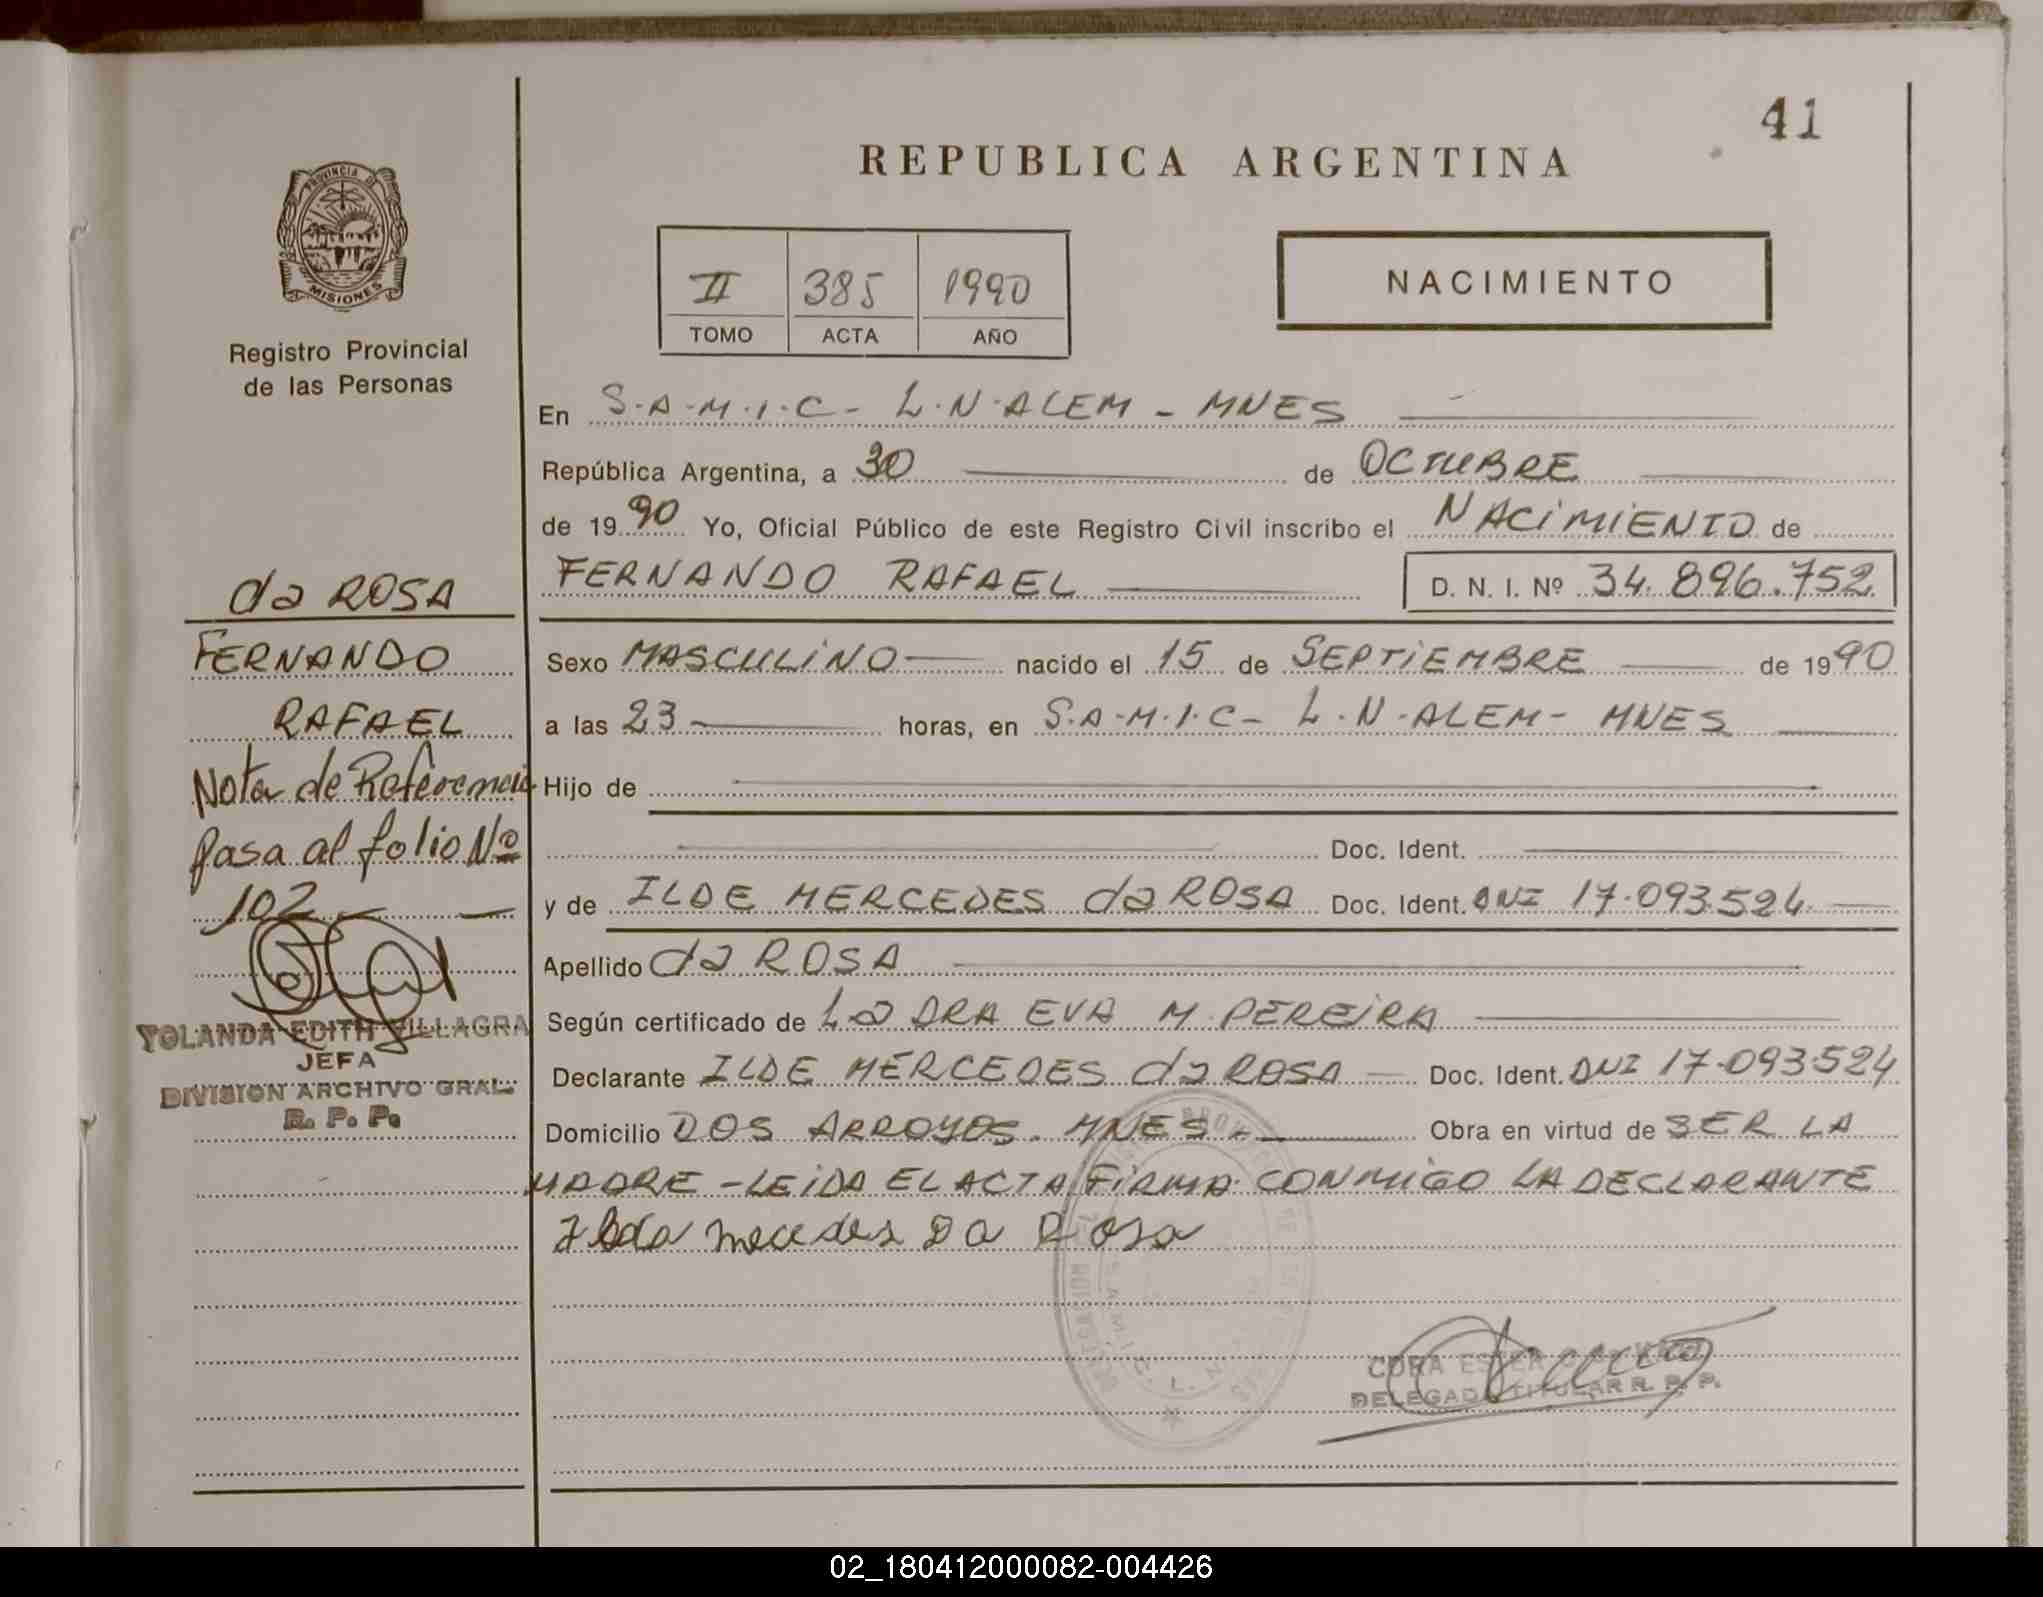 41
REPUBLICA ARGENTINA
PROVINCIA DE
MISIONES
Registro Provincial
de las Personas
II 385 1990
TOMO ACTA AÑO
NACIMIENTO
En S.A.M.I.C - L.N.ALEM - MNES
República Argentina, a 30 de OCTUBRE
de 1990 Yo, Oficial Público de este Registro Civil inscribo el NACIMIENTO de
FERNANDO RAFAEL D. N. I. Nº 34.896.752
da ROSA
FERNANDO
RAFAEL
Nota de Referencia
pasa al folio Nº
102
YOLANDA EDITH VILLAGRA
JEFA
DIVISION ARCHIVO GRAL.
R. P. P.
Sexo MASCULINO nacido el 15 de SEPTIEMBRE de 1990
a las 23 horas, en S.A.M.I.C - L.N.ALEM - MNES
Hijo de
Doc. Ident.
y de ILDE MERCEDES da ROSA Doc. Ident. DNI 17.093.524
Apellido da ROSA
Según certificado de La DRA EVA M. PEREIRA
Declarante ILDE MERCEDES da ROSA Doc. Ident. DNI 17.093.524
Domicilio DOS ARROYOS. MNES - Obra en virtud de SER LA
MADRE - LEIDA EL ACTA FIRMA CONMIGO LA DECLARANTE
Da Rosa
CORA ESTER
DELEGADA TITULAR R. P. P.
02_180412000082-004426